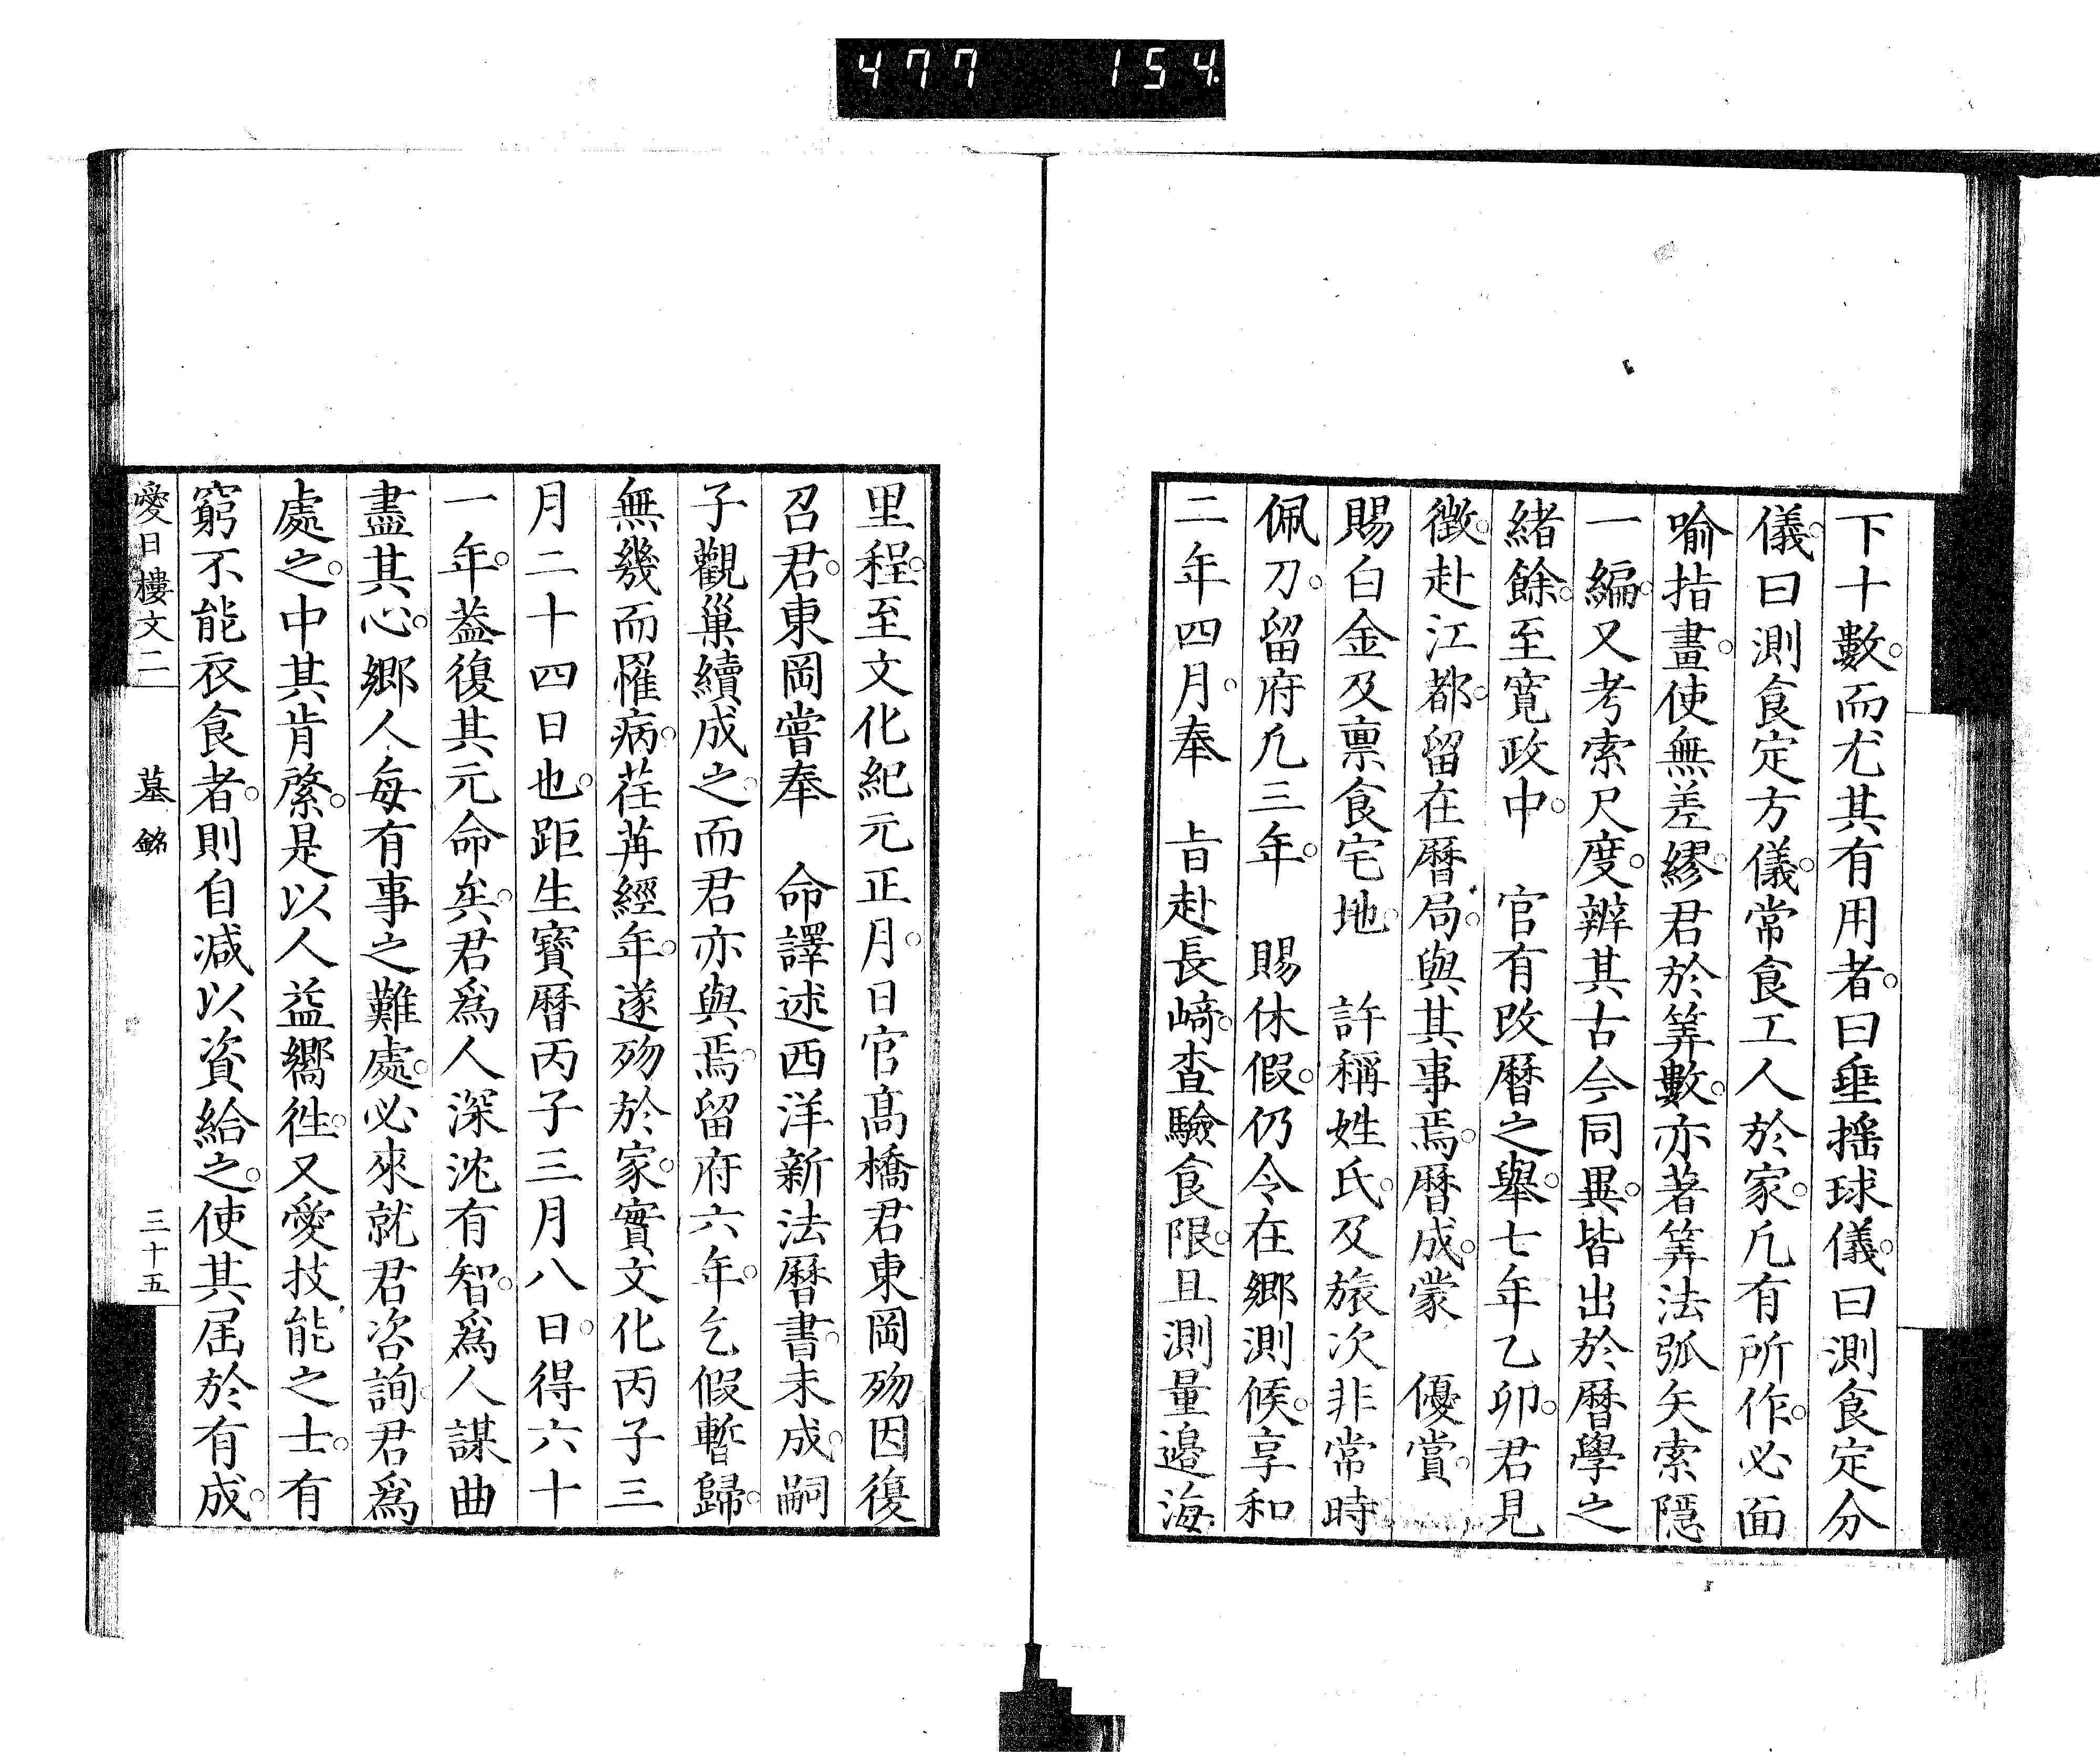 477 154
下十數。而尤其有用者。曰垂揺球儀。曰測食定分
儀。曰測食定方儀。常食工人於家。凡有所作。必面
喻指畫。使無差繆。君於筭數。亦著筭法弧矢索隱
一編。又考索尺度。辨其古今同異。皆出於曆學之
緒餘。至寬政中。官有改曆之舉。七年乙卯。君見
徵。赴江都。留在曆局。與其事焉。曆成。蒙 優賞。
賜白金及禀食宅地。 許稱姓氏。及旅次非常時
佩刀。留府凢三年。 賜休假。仍令在鄉測候。享和
二年四月。奉 㫖赴長﨑。查驗食限。且測量邉海
里程。至文化紀元正月。日官高橋君東岡歾。因復
召君。東岡嘗奉 命譯述西洋新法曆書。未成。嗣
子觀巢續成之。而君亦與焉。留府六年。乞假暫歸。
無幾而罹病。荏苒經年。遂歾於家。實文化丙子三
月二十四日也。距生寶曆丙子三月八日。得六十
一年。葢復其元命矣。君爲人深沈有智。爲人謀曲
盡其心。鄉人每有事之難處。必來就君咨詢。君爲
處之。中其肯綮。是以人益嚮徃。又愛技能之士。有
窮不能衣食者。則自減以資給之。使其屆於有成。
愛日樓文二 墓銘 三十五